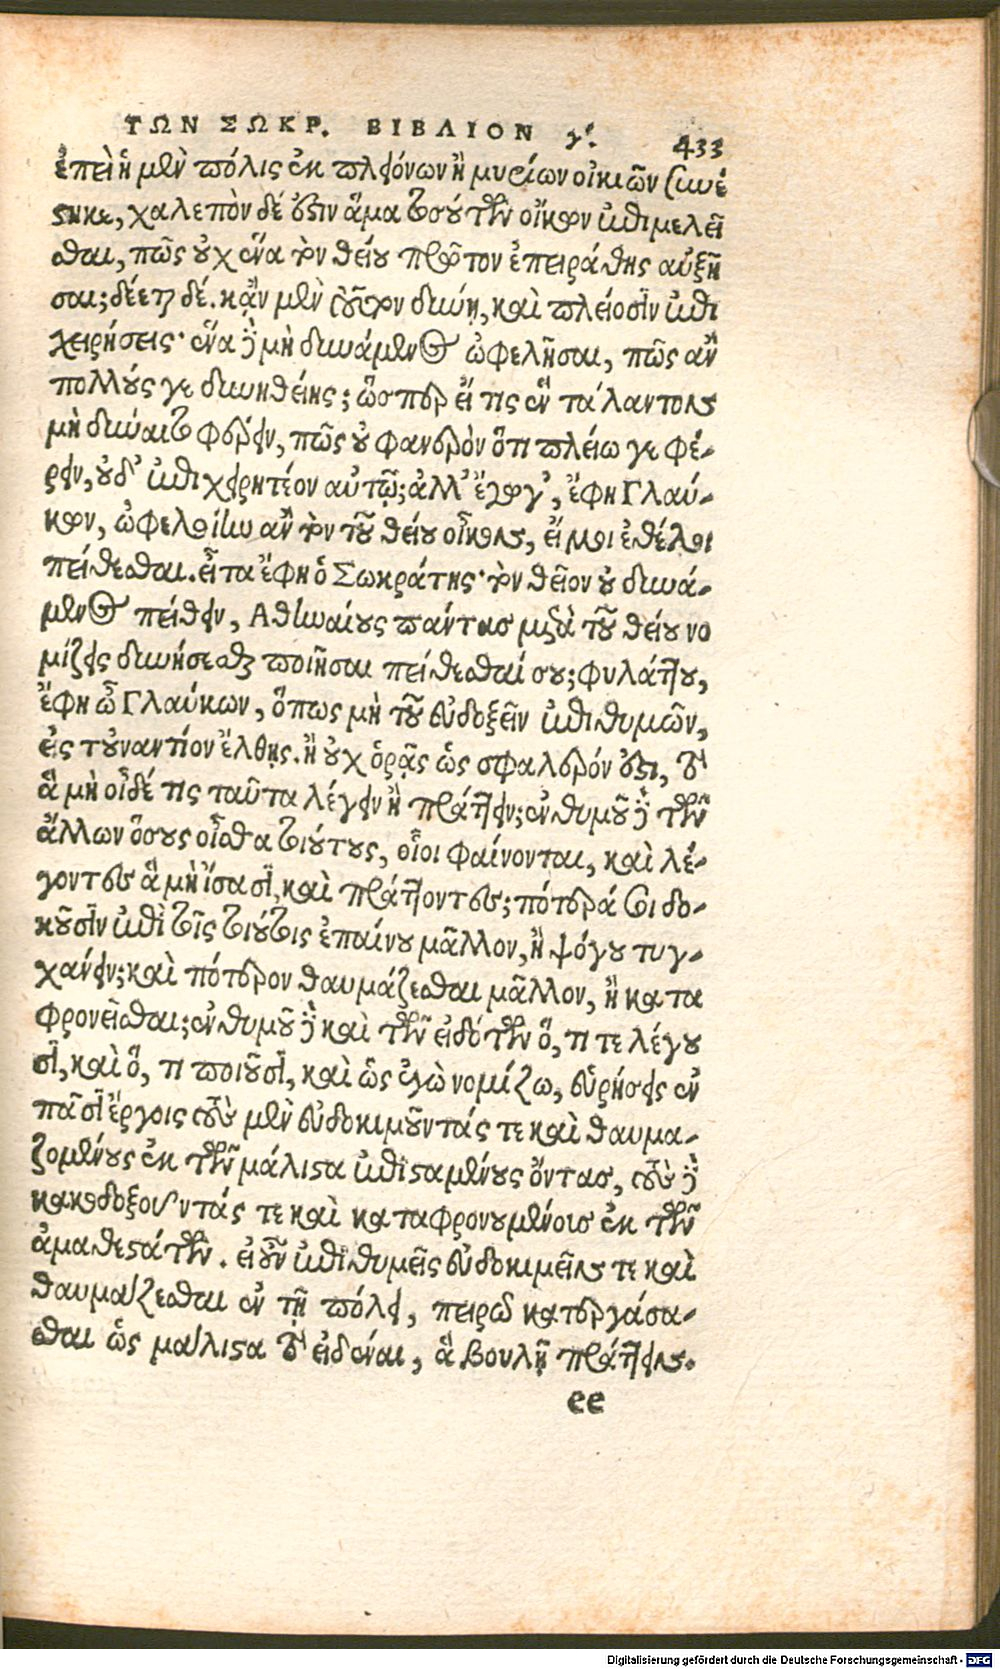 ΤΩΝ ΣΩΚΡ. ΒΙΒΛΙΟΝ γ'. 433
ἐπεὶ ἡ μὲν πόλις ἐκ πλειόνων ἢ μυρίων οἰκιῶν συνέ
στηκε, χαλεπὸν δέ ἐστιν ἅμα τοσούτων οἴκων ἐπιμελεῖ
σθαι, πῶς οὐχ ἕνα τὸν θείου πρῶτον ἐπειράθης αὐξῆ
σαι; δέεται δέ. κᾂν μὲν τοῦτον δύνῃ, καὶ πλείοσιν ἐπι
χειρήσεις· ἕνα δὲ μὴ δυνάμενος ὠφελῆσαι, πῶς ἂν
πολλούς γε δυνηθείης; ὥσπερ εἴ τις ἓν τάλαντον
μὴ δύναιτο φέρειν, πῶς οὐ φανερὸν ὅτι πλείω γε φέ-
ρειν, οὐδ' ἐπιχειρητέον αὐτῷ; ἀλλ' ἔγωγ', ἔφη Γλαύ-
κων, ὠφελοίην ἂν τὸν τοῦ θείου οἶκον, εἴ μοι ἐθέλοι
πείθεσθαι. εἶτα ἔφη ὁ Σωκράτης· τὸν θεῖον οὐ δυνά-
μενος πείθειν, Ἀθηναίους πάντας μετὰ τοῦ θείου νο
μίζεις δυνήσεσθαι ποιῆσαι πείθεσθαί σου; φυλάττου,
ἔφη ὦ Γλαύκων, ὅπως μὴ τοῦ εὐδοξεῖν ἐπιθυμῶν,
εἰς τοὐναντίον ἔλθῃς. ἢ οὐχ ὁρᾷς ὡς σφαλερόν ἐστι, τὸ
ἃ μὴ οἶδέ τις ταῦτα λέγειν ἢ πράττειν; ἐνθυμοῦ δὲ τῶν
ἄλλων ὅσους οἶσθα τοιούτους, οἷοι φαίνονται, καὶ λέ-
γοντες ἃ μὴ ἴσασι, καὶ πράττοντες; πότερά σοι δο-
κοῦσιν ἐπὶ τοῖς τοιούτοις ἐπαίνου μᾶλλον, ἢ ψόγου τυγ-
χάνειν; καὶ πότερον θαυμάζεσθαι μᾶλλον, ἢ κατα
φρονεῖσθαι; ἐνθυμοῦ δὲ καὶ τῶν εἰδότων ὅ, τι τε λέγου
σι, καὶ ὅ, τι ποιοῦσι, καὶ ὡς ἐγὼ νομίζω, εὑρήσεις ἐν
πᾶσι ἔργοις τοὺς μὲν εὐδοκιμοῦντάς τε καὶ θαυμα-
ζομένους ἐκ τῶν μάλιστα ἐπισταμένους ὄντας, τοὺς δὲ
κακοδοξοῦντάς τε καὶ καταφρονουμένους ἐκ τῶν
ἀμαθεστάτων. εἰ οὖν ἐπιθυμεῖς εὐδοκιμεῖν τε καὶ
θαυμάζεσθαι ἐν τῇ πόλει, πειρῶ κατεργάσα-
σθαι ὡς μάλιστα τὸ εἰδέναι, ἃ βουλῇ πράττειν.
ee
Digitalisierung gefördert durch die Deutsche Forschungsgemeinschaft - DFG